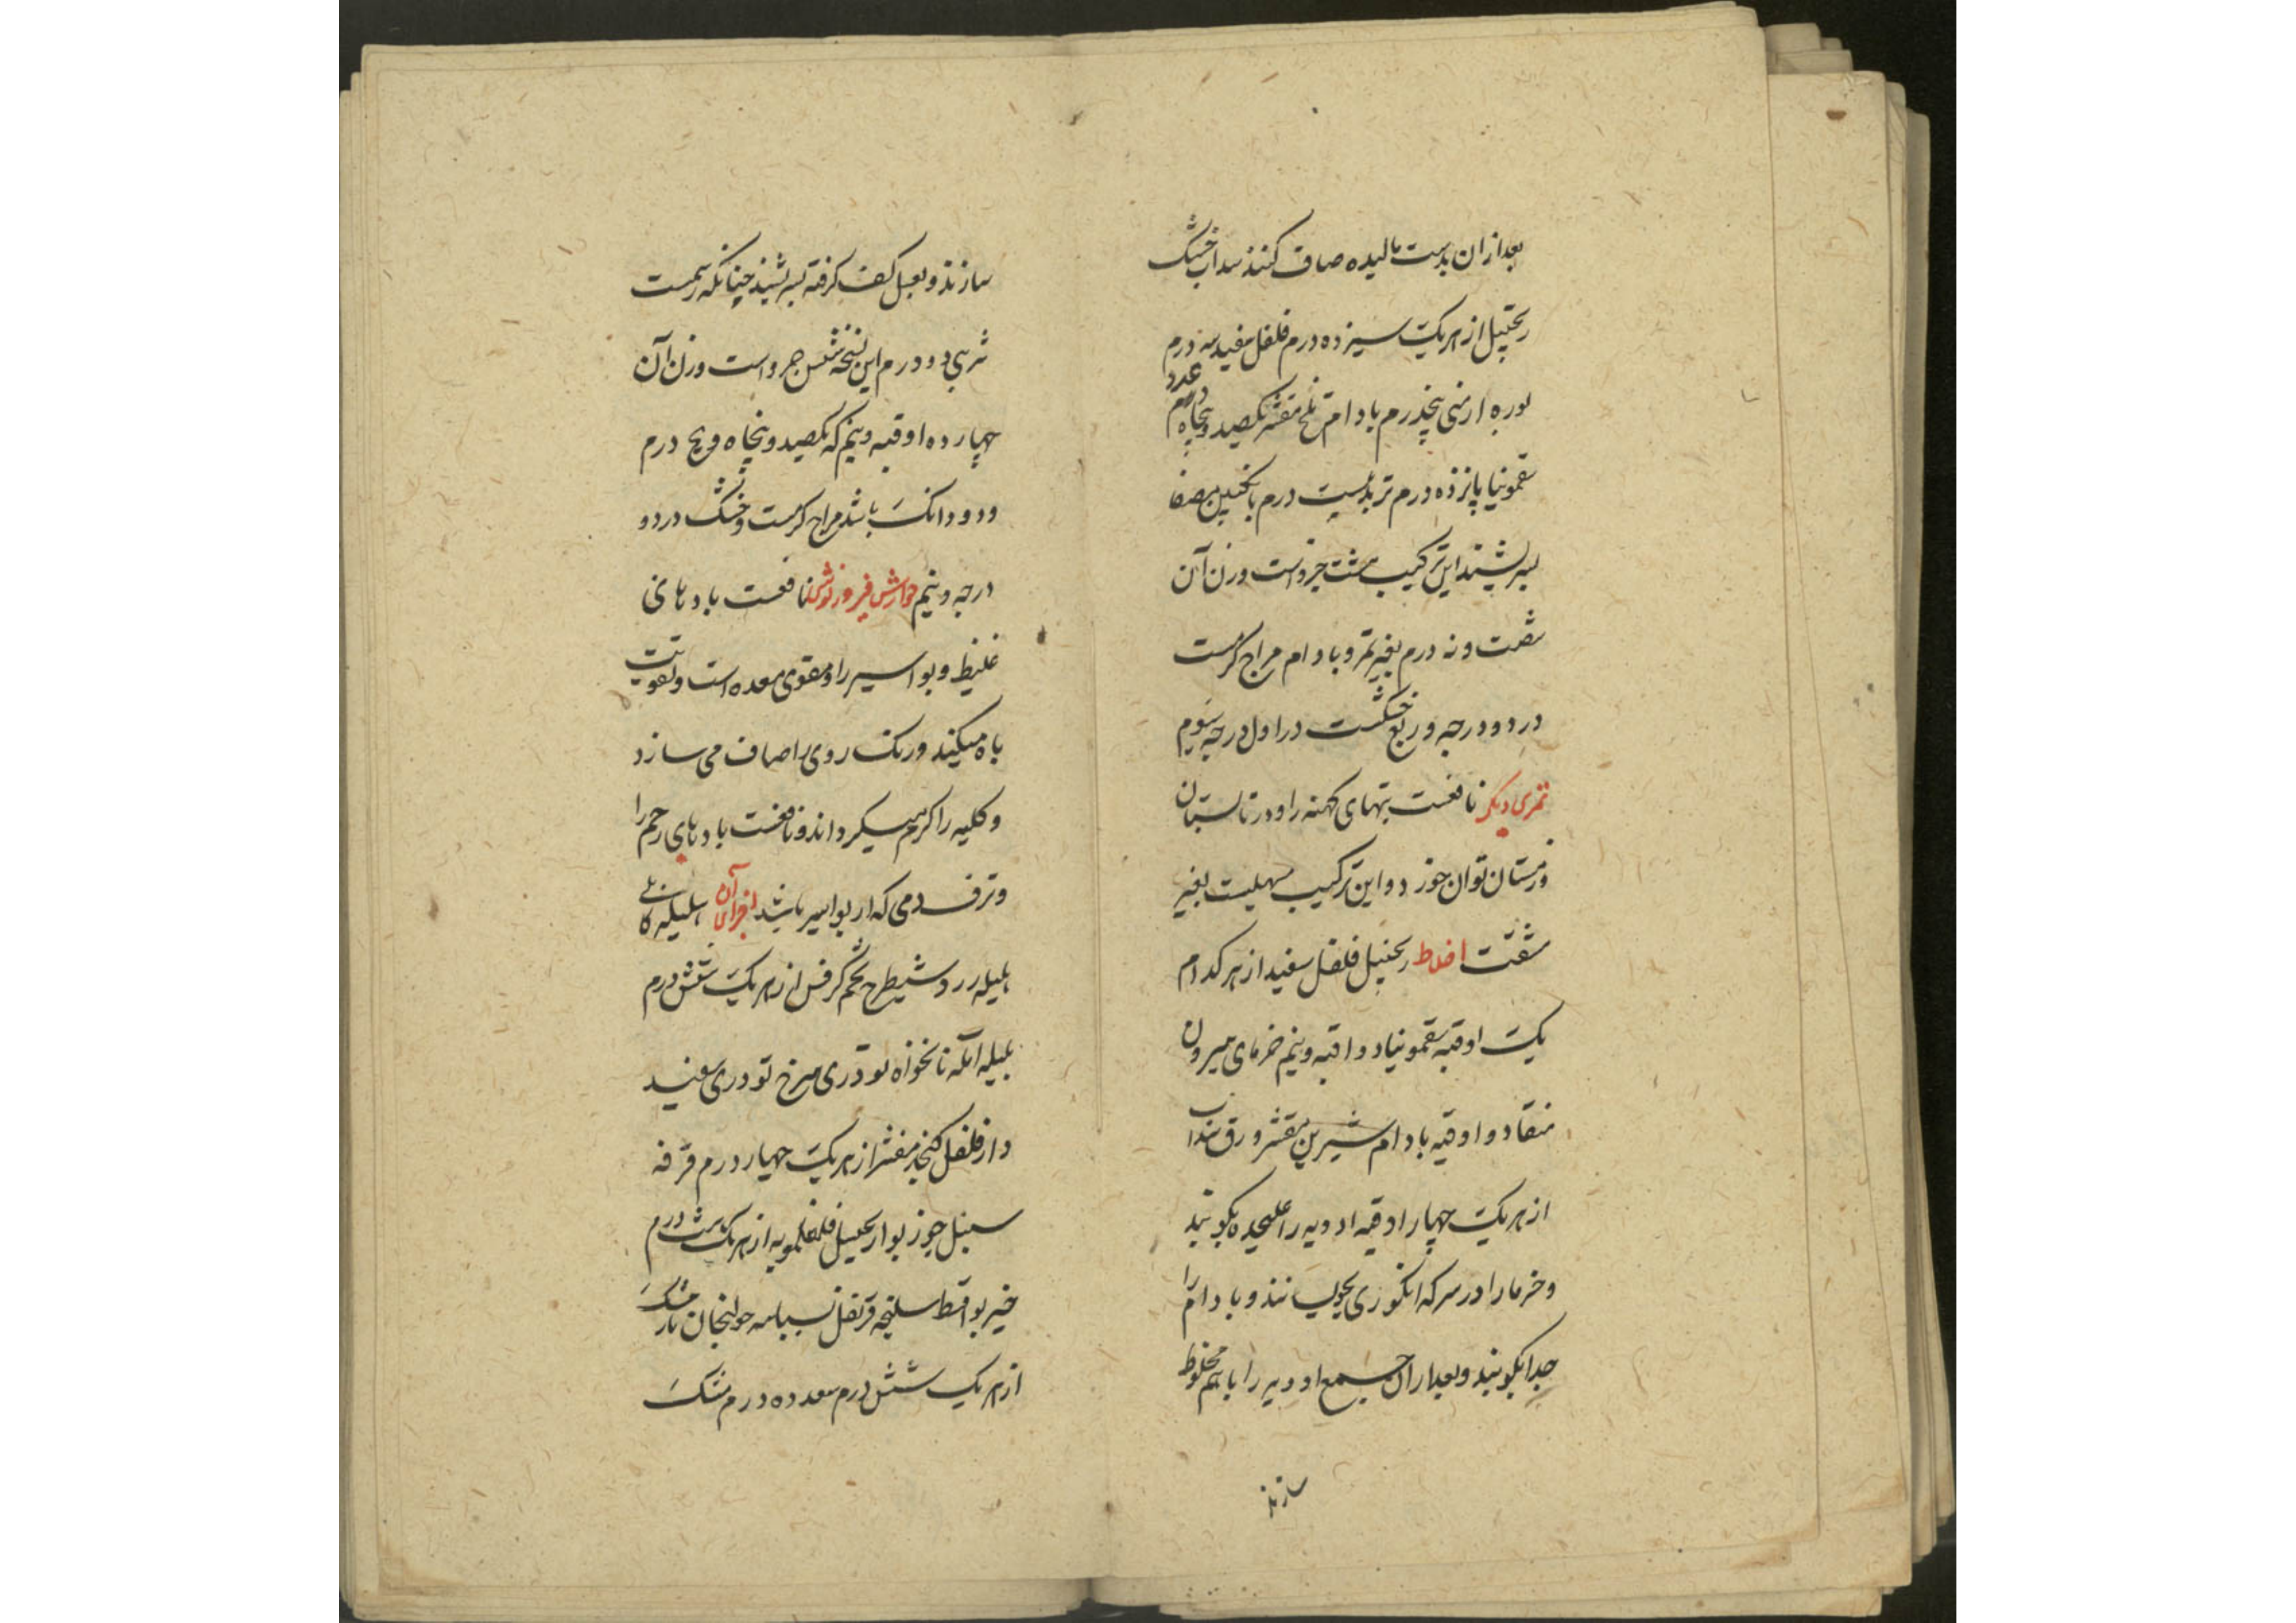 بعد ازان بدست مالیده صاف کنند سداب خشک
زنجبیل از هر یک سیزده درم فلفل سفید سه درم
بوره ارمنی پنجدرم بادام تلخ مقشر یکصد و پنجاه عدد
سقمونیا پانزده درم تربد بیست درم بانگبین مصفا
بسرشند این ترکیب هشت جزو است وزن آن
شصت و نه درم بغیر تمر و بادام مزاج گرمست
در دو درجه و ربع خشکست در اول درجه سوم
تمری دیگر نافعست تبهای کهنه را و در تابستان
و زمستان توان خورد و این ترکیب مسهلیست بغیر
مشقت اخلاط زنجبیل فلفل سفید از هر کدام
یک اوقیه سقمونیا دو اقیه و نیم خرمای بیرون
منقا دو اوقیه بادام شیرین مقشر ورق سداب
از هر یک چهار اوقیه ادویه را علیحده بکوبند
و خرما را در سرکه انگوری بخیسانند و بادام را
جدا بکوبند و بعد ازان جمیع ادویه را باهم مخلوط
سازند
سازند و بعسل کف گرفته بسرشند چنانکه رسمست
شربتی دو درم این نسخه شش جزو است وزن آن
چهارده اوقیه و نیم که یکصد و پنجاه و پنج درم
و دو دانک باشد مزاج گرمست و خشک در دو
درجه و نیم جوارش فیروزنوش نافعست بادهای
غلیظ و بواسیر را و مقوی معده است و تقویت
باه میکند و رنک روی را صاف می سازد
و کلیه را گرم میگرداند و نافعست بادهای رحم را
و نزف دمی که از بواسیر باشد اجزای آن هلیله کابلی
هلیله زرد شیطرج تخم کرفس از هر یک شش درم
بلیله آمله نانخواه تودری سرخ تودری سفید
دارفلفل کنجد مقشر از هر یک چهار درم قرفه
سنبل جوزبوا زنجبیل فلفلمویه از هر یک هشت درم
خیربوا قسط سلیخه قرنفل بسباسه خولنجان نارمشک
از هر یک شش درم سعد ده درم مشک